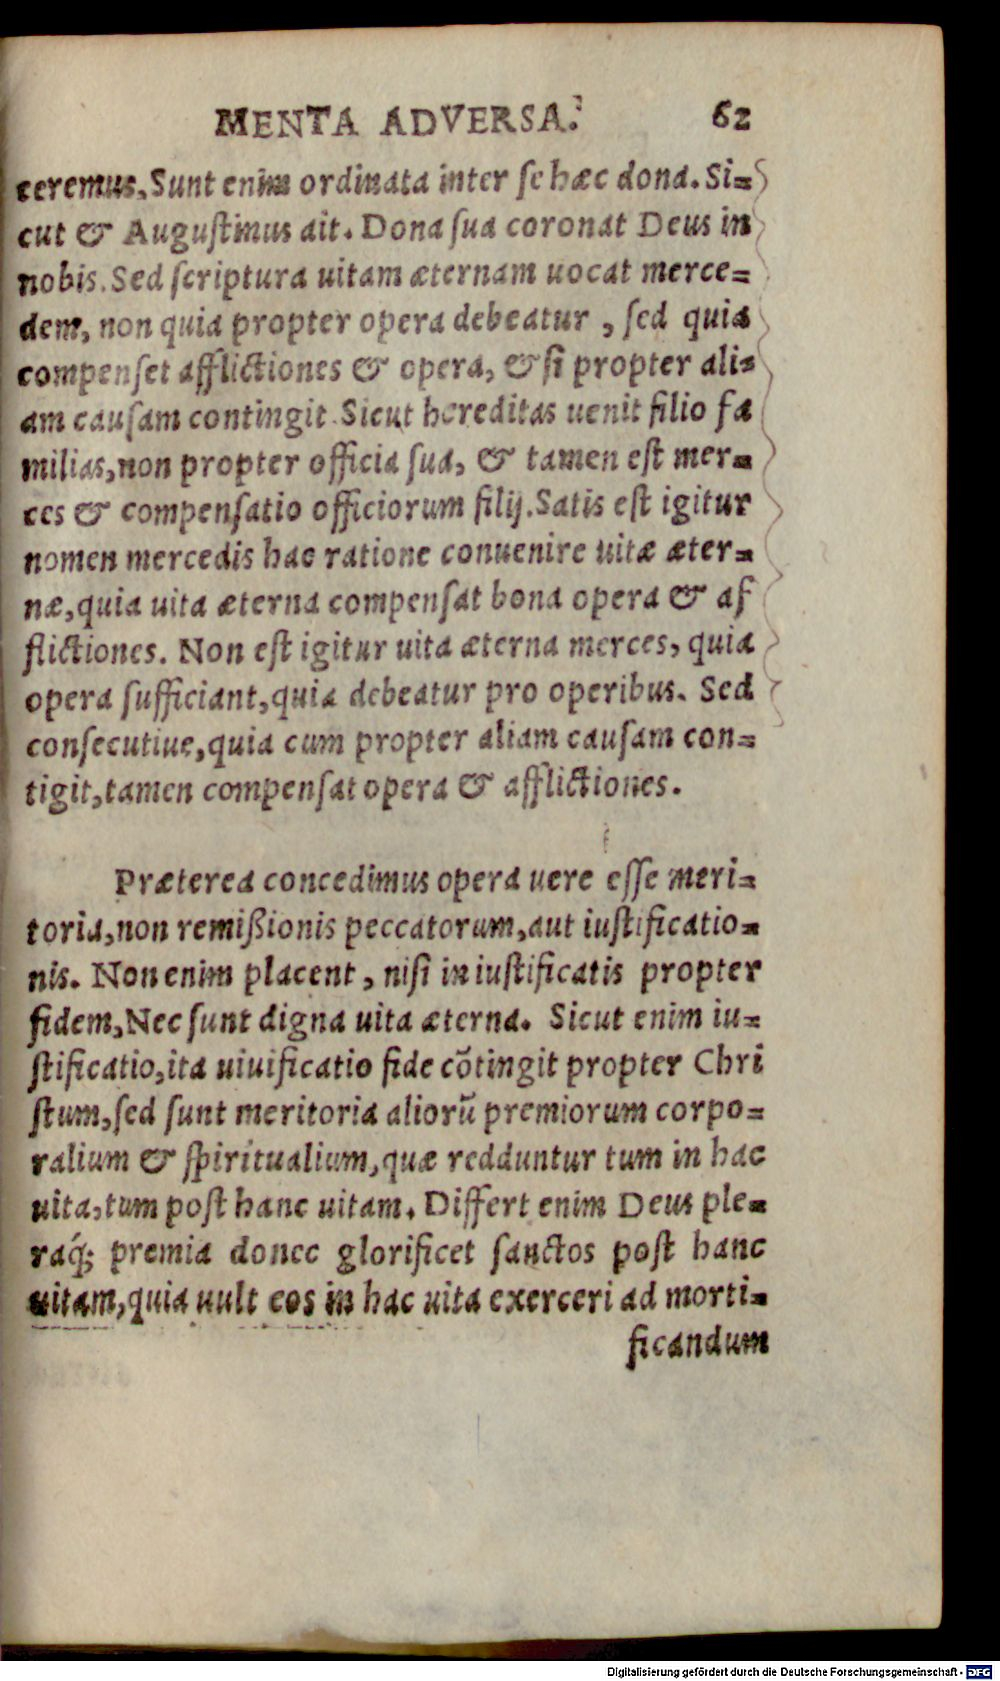 MENTA ADVERSA. 62
ceremus, Sunt enim ordinata inter se hæc dona. Si=
cut & Augustinus ait. Dona sua coronat Deus in
nobis. Sed scriptura uitam æternam uocat merce=
dem, non quia propter opera debeatur, sed quia
compenset afflictiones & opera, & si propter ali=
am causam contingit. Sicut hereditas uenit filio fa
milias, non propter officia sua, & tamen est mer=
ces & compensatio officiorum filij. Satis est igitur
nomen mercedis hac ratione conuenire uitæ æter=
næ, quia uita æterna compensat bona opera & af
flictiones. Non est igitur uita æterna merces, quia
opera sufficiant, quia debeatur pro operibus. Sed
consecutiue, quia cum propter aliam causam con=
tigit, tamen compensat opera & afflictiones.
Præterea concedimus opera uere esse meri=
toria, non remißionis peccatorum, aut iustificatio=
nis. Non enim placent, nisi in iustificatis propter
fidem, Nec sunt digna uita æterna. Sicut enim iu=
stificatio, ita uiuificatio fide cõtingit propter Chri
stum, sed sunt meritoria aliorũ premiorum corpo=
ralium & spiritualium, quæ redduntur tum in hac
uita, tum post hanc uitam. Differt enim Deus ple=
raq́; premia donec glorificet sanctos post hanc
uitam, quia uult eos in hac uita exerceri ad morti=
ficandum
Digitalisierung gefördert durch die Deutsche Forschungsgemeinschaft - DFG